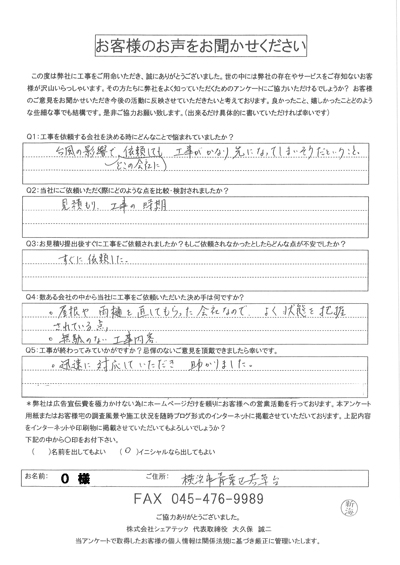 お客様のお声をお聞かせください
この度は弊社に工事をご用命いただき、誠にありがとうございました。世の中には弊社の存在やサービスをご存知ないお客
様が沢山いらっしゃいます。その方たちに弊社をよく知っていただくためのアンケートにご協力いただけるでしょうか? お客
様のご意見をお聞かせいただき今後の活動に反映させていただきたいと考えております。良かったこと、嬉しかったことどのよう
な些細な事でも結構です。是非ご協力お願い致します。(出来るだけ具体的に書いていただければ幸いです)
Q1:工事を依頼する会社を決める時にどんなことで悩まれていましたか?
台風の影響で、依頼しても 工事がかなり先になってしまいそうだということ。
(どこの会社に)
Q2:当社にご依頼いただく際にどのような点を比較・検討されましたか?
見積もり、工事の時期
Q3:お見積り提出後すぐに工事をご依頼されましたか?もしご依頼されなかったとしたらどんな点が不安でしたか?
すぐに依頼した。
Q4:数ある会社の中から当社に工事をご依頼いただいた決め手は何ですか?
○屋根や雨樋を直してもらった会社なので、よく状態を把握
されている点。
○無駄のない工事内容
Q5:工事が終わってみていかがですか?忌憚のないご意見を頂戴できましたら幸いです。
○迅速に対応していただき 助かりました。
*弊社は広告宣伝費を極力かけない為にホームページだけを頼りにお客様への営業活動を行っております。本アンケート
用紙またはお客様宅の調査風景や施工状況を随時ブログ形式のインターネットに掲載させていただいております。上記内容
をインターネットや印刷物に掲載させていただいてもよろしいでしょうか?
下記の中から〇印をお付下さい。
( )名前を出してもよい (○)イニシャルなら出してもよい
お名前: O 様 ご住所: 横浜市青葉区
FAX 045-476-9989
ご協力ありがとうございました。
株式会社シェアテック 代表取締役 大久保 誠二
当アンケートで取得したお客様の個人情報は関係法規に基づき厳正に管理いたします。